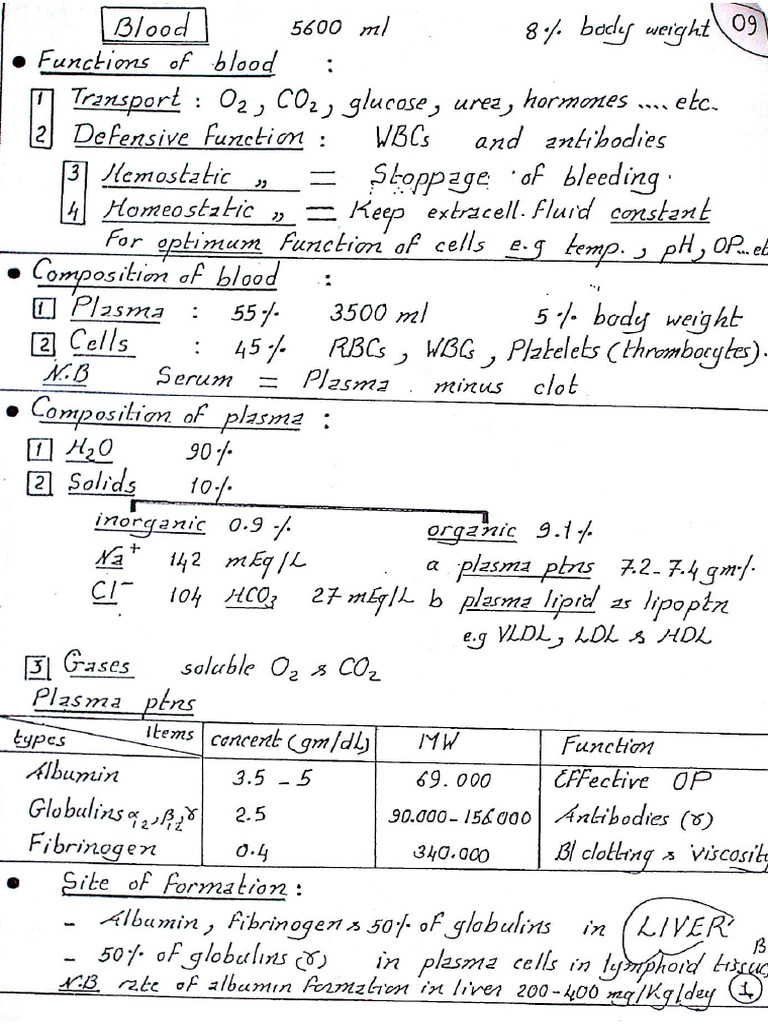 Blood 5600 ml 8% body weight 09
• Functions of blood :
1 Transport : O2, CO2, glucose, urea, hormones .... etc.
2 Defensive function : WBCs and antibodies
3 Hemostatic „ = Stoppage of bleeding.
4 Homeostatic „ = Keep extracell. fluid constant
For optimum function of cells e.g temp., pH, OP...et
• Composition of blood :
1 Plasma : 55% 3500 ml 5% body weight
2 Cells : 45% RBCs, WBCs, Platelets (thrombocytes).
N.B Serum = Plasma minus clot
• Composition of plasma :
1 H2O 90%
2 Solids 10%
inorganic 0.9% organic 9.1%
Na+ 142 mEq/L a plasma ptns 7.2-7.4 gm%
Cl- 104 HCO3 27 mEq/L b plasma lipid as lipoptn
e.g VLDL, LDL & HDL
3 Gases soluble O2 & CO2
Plasma ptns
types Items concent (gm/dL) MW Function
Albumin 3.5 - 5 69.000 Effective OP
Globulins α1,2, β1,2, γ 2.5 90.000-156000 Antibodies (γ)
Fibrinogen 0.4 340.000 Bl clotting & viscosity
• Site of formation :
- Albumin, fibrinogen & 50% of globulins in LIVER
- 50% of globulins (γ) in plasma cells in lymphoid tissu
N.B rate of albumin formation in liver 200-400 mg/Kg/day 1